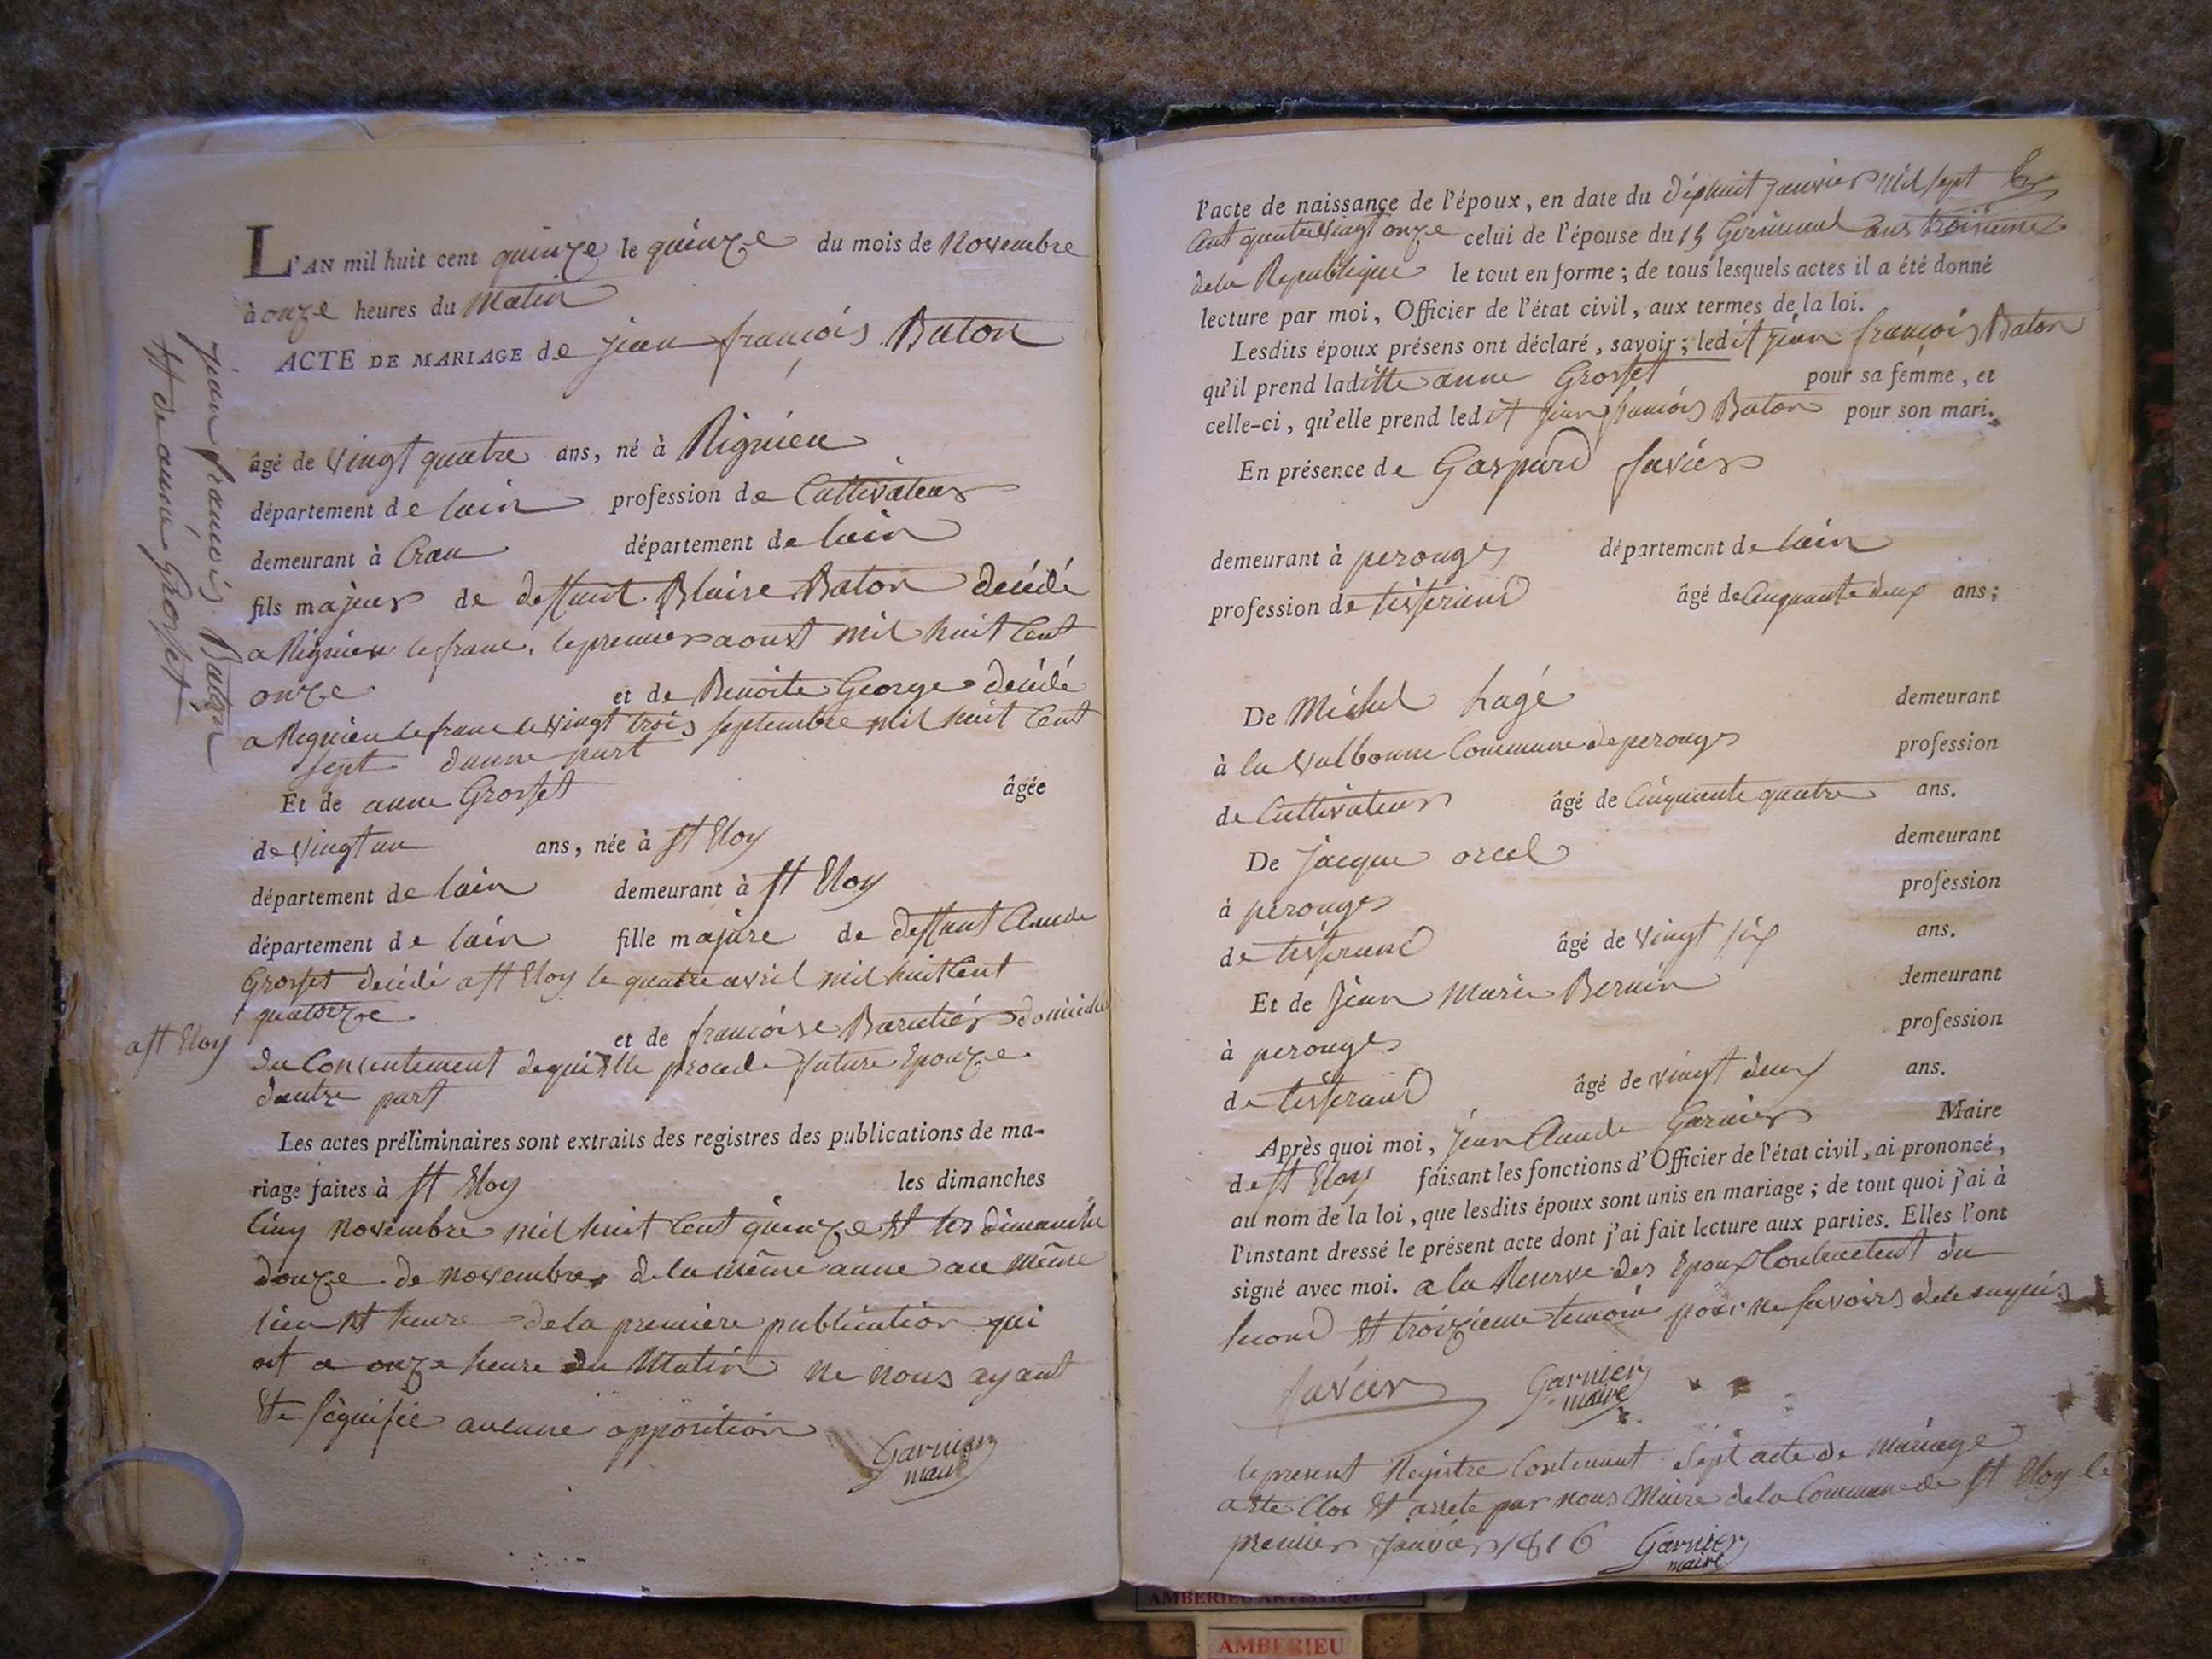 L'AN mil huit cent quinze le quinze du mois de Novembre
à onze heures du Matin
ACTE DE MARIAGE de jean françois Baton
âgé de vingt quatre ans, né à Rignieu
département de lain profession de Cultivateur
demeurant à Cran département de lain
fils majeur de deffunt Blaise Baton decédé
a Rignieu le franc, le premier aoust mil huit Cent
onze et de Benoite George decédé
a Regnieu le franc le vingt trois septembre mil huit Cent
sept dunne part
Et de anne Grosset âgée
de vingt un ans, née à st Eloy
département de lain demeurant à st Eloy
département de lain fille majure de deffunt Claude
Grosset decédé a st Eloy le quatre avril mil huit Cent
quatorze
et de françoise Barutier domicilié
a st Eloy
du Consentement de qui elle procede future Epouze
dautre part
Les actes préliminaires sont extraits des registres des publications de ma-
riage faites à st Eloy les dimanches
Cinq novembre mil huit Cent quinze et les dimanche
douze de novembre de la même anne au même
lieu et heure de la premiere publication qui
est a onze heure du Matin ne nous ayant
ete signifié aucune opposition
Garnier
maire
jean françois Baton
et de anne Grosset
l'acte de naissance de l'époux, en date du dixhuit janvier mil sept
Cent quatrevingt onze celui de l'épouse du 15 Germinal ans troisieme
de la Republique le tout en forme ; de tous lesquels actes il a été donné
lecture par moi, Officier de l'état civil, aux termes de la loi.
Lesdits époux présens ont déclaré, savoir ; ledit jean françois Baton
qu'il prend laditte anne Grosset pour sa femme, et
celle-ci, qu'elle prend ledit jean françois Baton pour son mari.
En présence de Gaspard favier
demeurant à perouges département de lain
profession de tisserand âgé de Cinquante deux ans ;
De Michel hagé demeurant
à la Valbonne Commune de perouges profession
de Cultivateur âgé de Cinquante quatre ans.
De jacque orcel demeurant
à perouges profession
de tisserand âgé de vingt six ans.
Et de jean Marie Bernin demeurant
à perouges profession
de tisserand âgé de vingt deux ans.
Après quoi moi, jean Claude Garnier Maire
de st Eloy faisant les fonctions d'Officier de l'état civil, ai prononcé,
au nom de la loi, que lesdits époux sont unis en mariage ; de tout quoi j'ai à
l'instant dressé le présent acte dont j'ai fait lecture aux parties. Elles l'ont
signé avec moi. a la Reserve des Epoux Contractent du
second et troizieme temoin pour ne savoirs de ce enquis
favier Garnier
maire
le present Registre Contenant sept acte de Mariage
a ete Clos et arrete par nous Maire de la Commune de st Eloy le
premier janvier 1816 Garnier
maire
AMBERIEU ARTISTIQUE
AMBERIEU